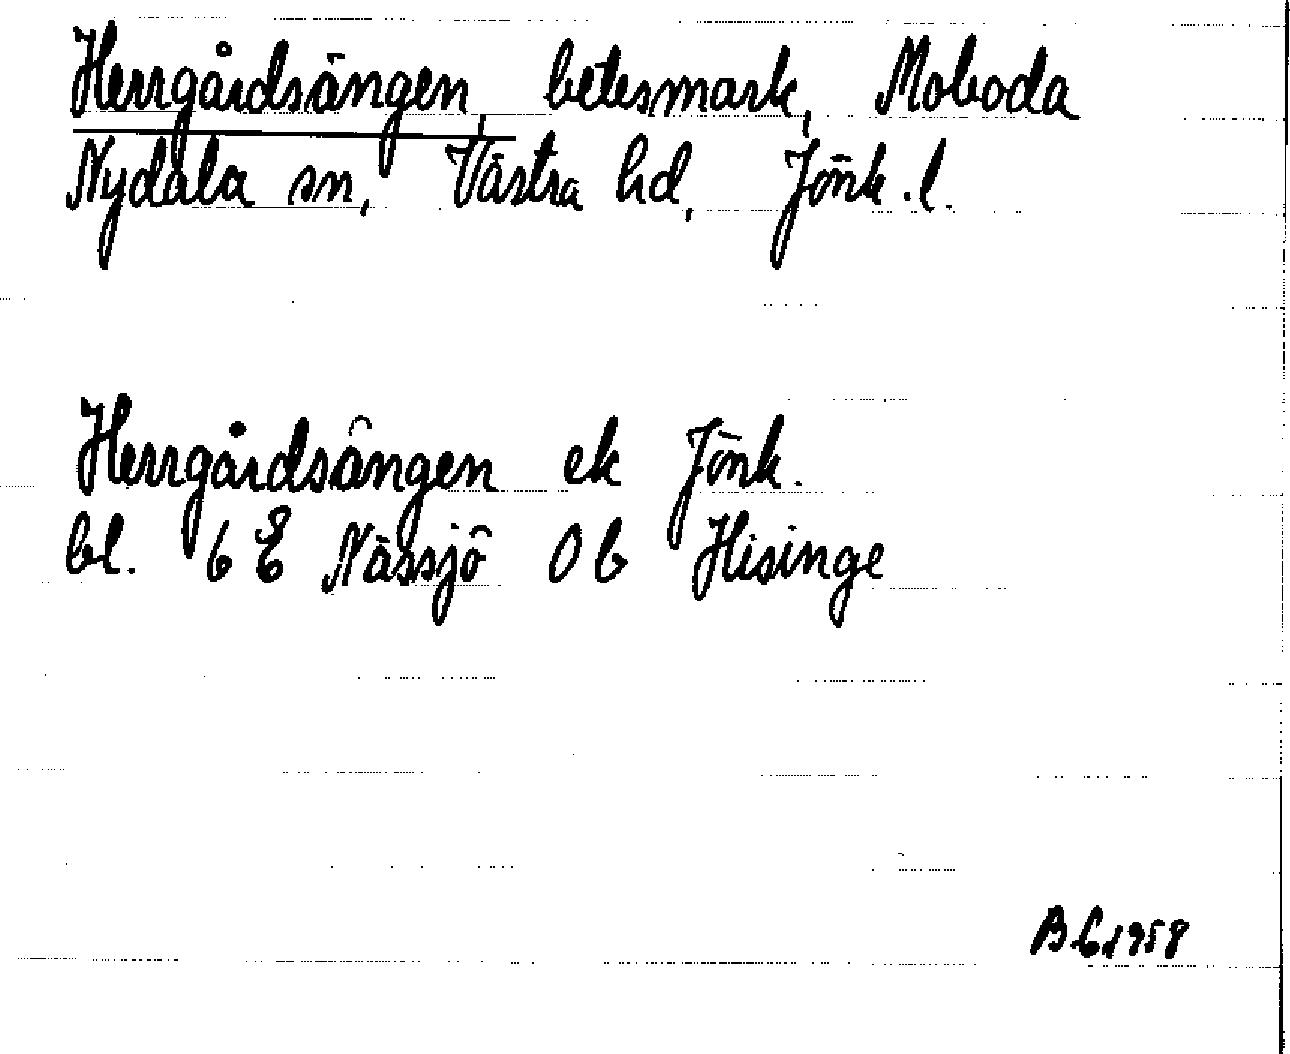 Herrgårdsängen, betesmark, Moboda
Nydala sn, Västra hd, Jönk. l.
Herrgårdsängen ek Jönk.
bl. 6 E Nässjö 0 b Hisinge
1958